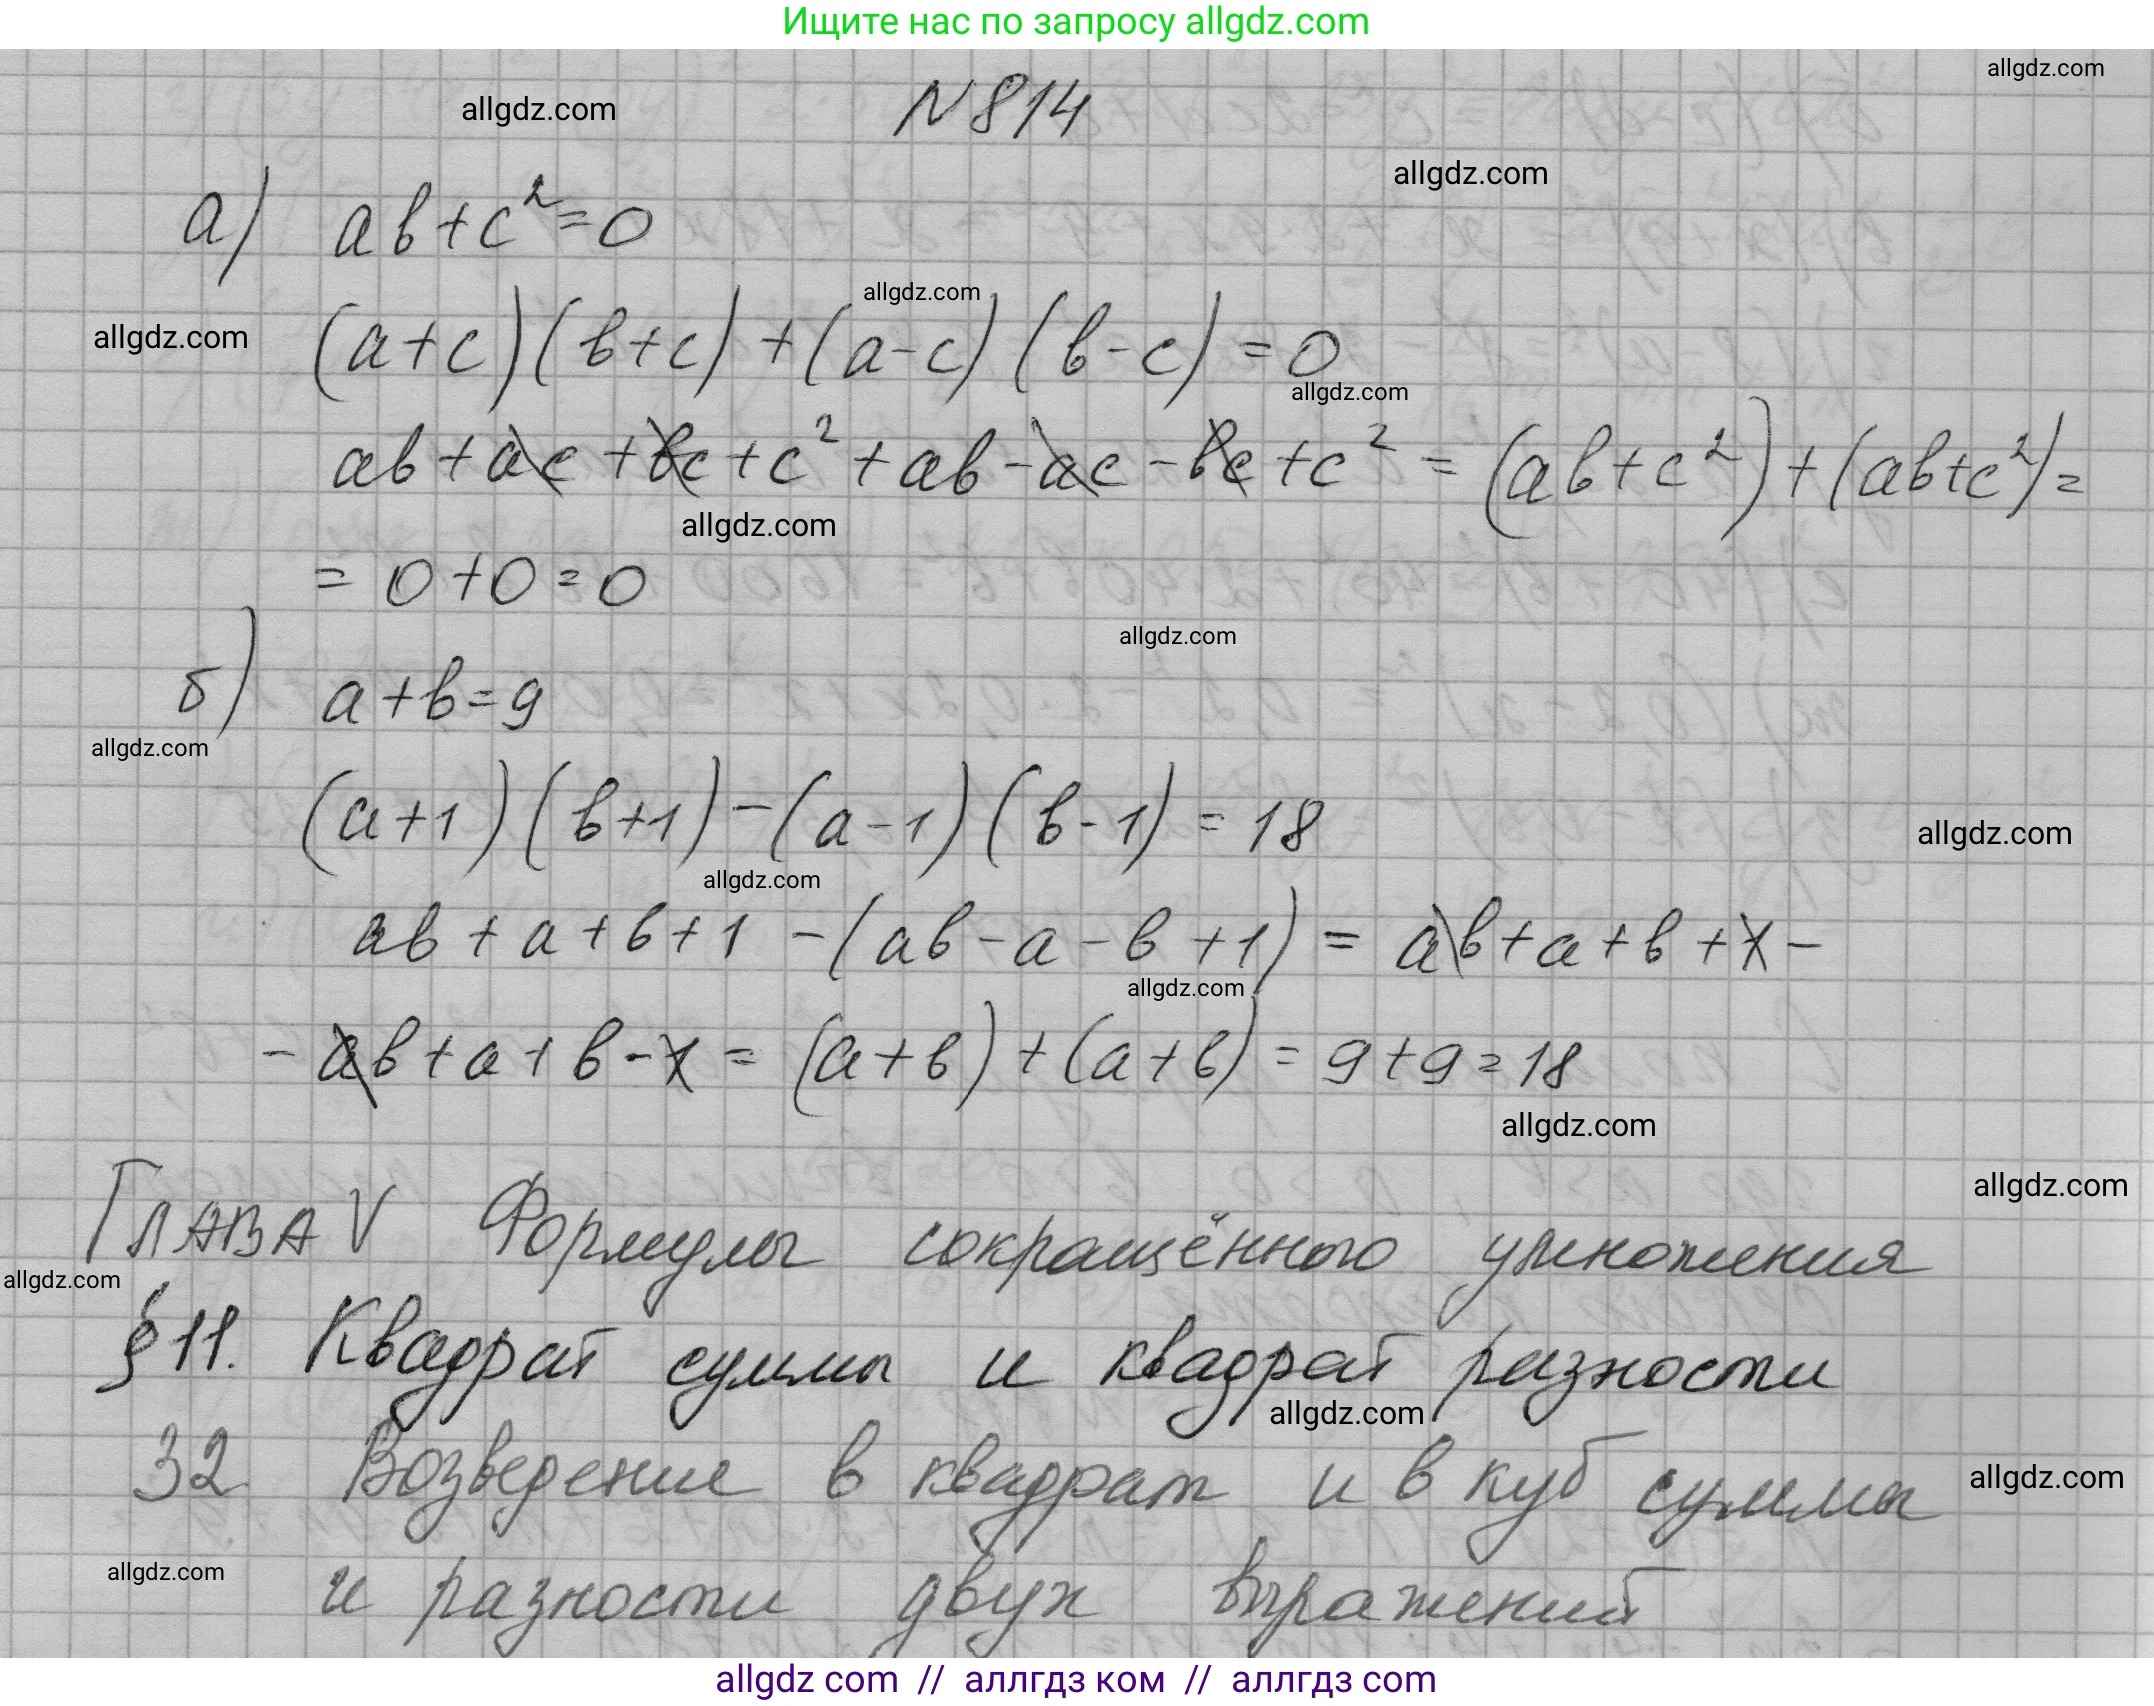 Ищите нас по запросу allgdz.com
allgdz.com
allgdz.com
N 814
allgdz.com
а) ав+с²=0
allgdz.com
allgdz.com
(а+с)(в+с)+(а-с)(в-с)=0
allgdz.com
ав+ас+вс+с²+ав-ас-вс+с²=(ав+с²)+(ав+с²)=
allgdz.com
=0+0=0
allgdz.com
б) а+в=9
allgdz.com
(а+1)(в+1)-(а-1)(в-1)=18
allgdz.com
allgdz.com
ав+а+в+1-(ав-а-в+1)=ав+а+в+1-
allgdz.com
-ав+а+в-1=(а+в)+(а+в)=9+9=18
allgdz.com
allgdz.com
Глава V Формулы сокращённого умножения
allgdz.com
§ 11. Квадрат суммы и квадрат разности
allgdz.com
32 Возведение в квадрат и в куб суммы
allgdz.com
allgdz.com
и разности двух выражений
allgdz.com // аллгдз ком // аллгдз com